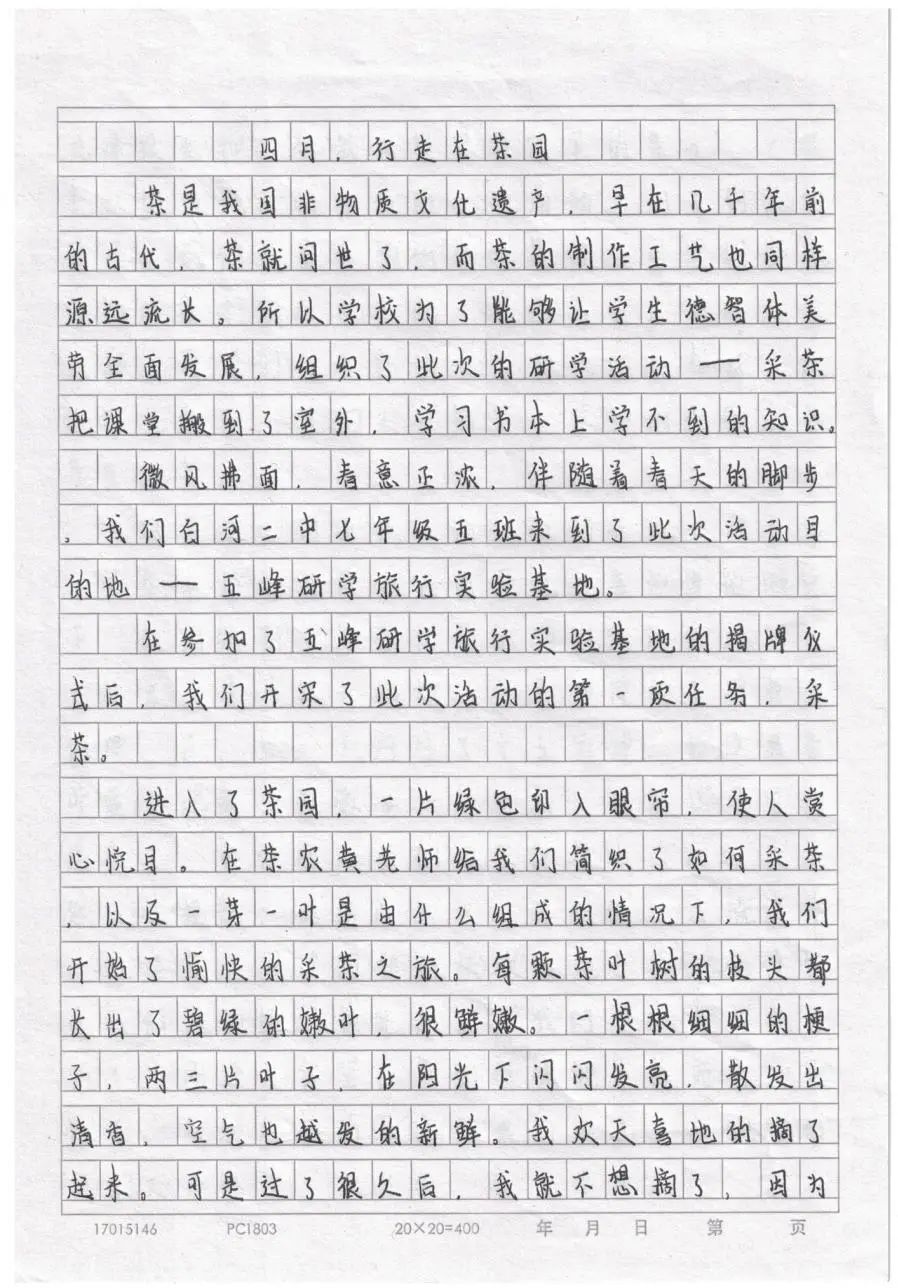 四月，行走在茶园
茶是我国非物质文化遗产，早在几千年前
的古代，茶就问世了，而茶的制作工艺也同样
源远流长。所以学校为了能够让学生德智体美
劳全面发展，组织了此次的研学活动——采茶
把课堂搬到了室外，学习书本上学不到的知识。
微风拂面，春意正浓，伴随着春天的脚步
，我们白河二中七年级五班来到了此次活动目
的地——五峰研学旅行实验基地。
在参加了五峰研学旅行实验基地的揭牌仪
式后，我们开宋了此次活动的第一项任务，采
茶。
进入了茶园，一片绿色印入眼帘，使人赏
心悦目。在茶农黄老师给我们简织了如何采茶
，以及一芽一叶是由什么组成的情况下，我们
开始了愉快的采茶之旅。每颗茶叶树的枝头都
长出了碧绿的嫩叶，很鲜嫩。一根根细细的梗
子，两三片叶子，在阳光下闪闪发亮，散发出
清香，空气也越发的新鲜。我欢天喜地的摘了
起来。可是过了很久后，我就不想摘了，因为
17015146 PC1803 20×20=400 年 月 日 第 页